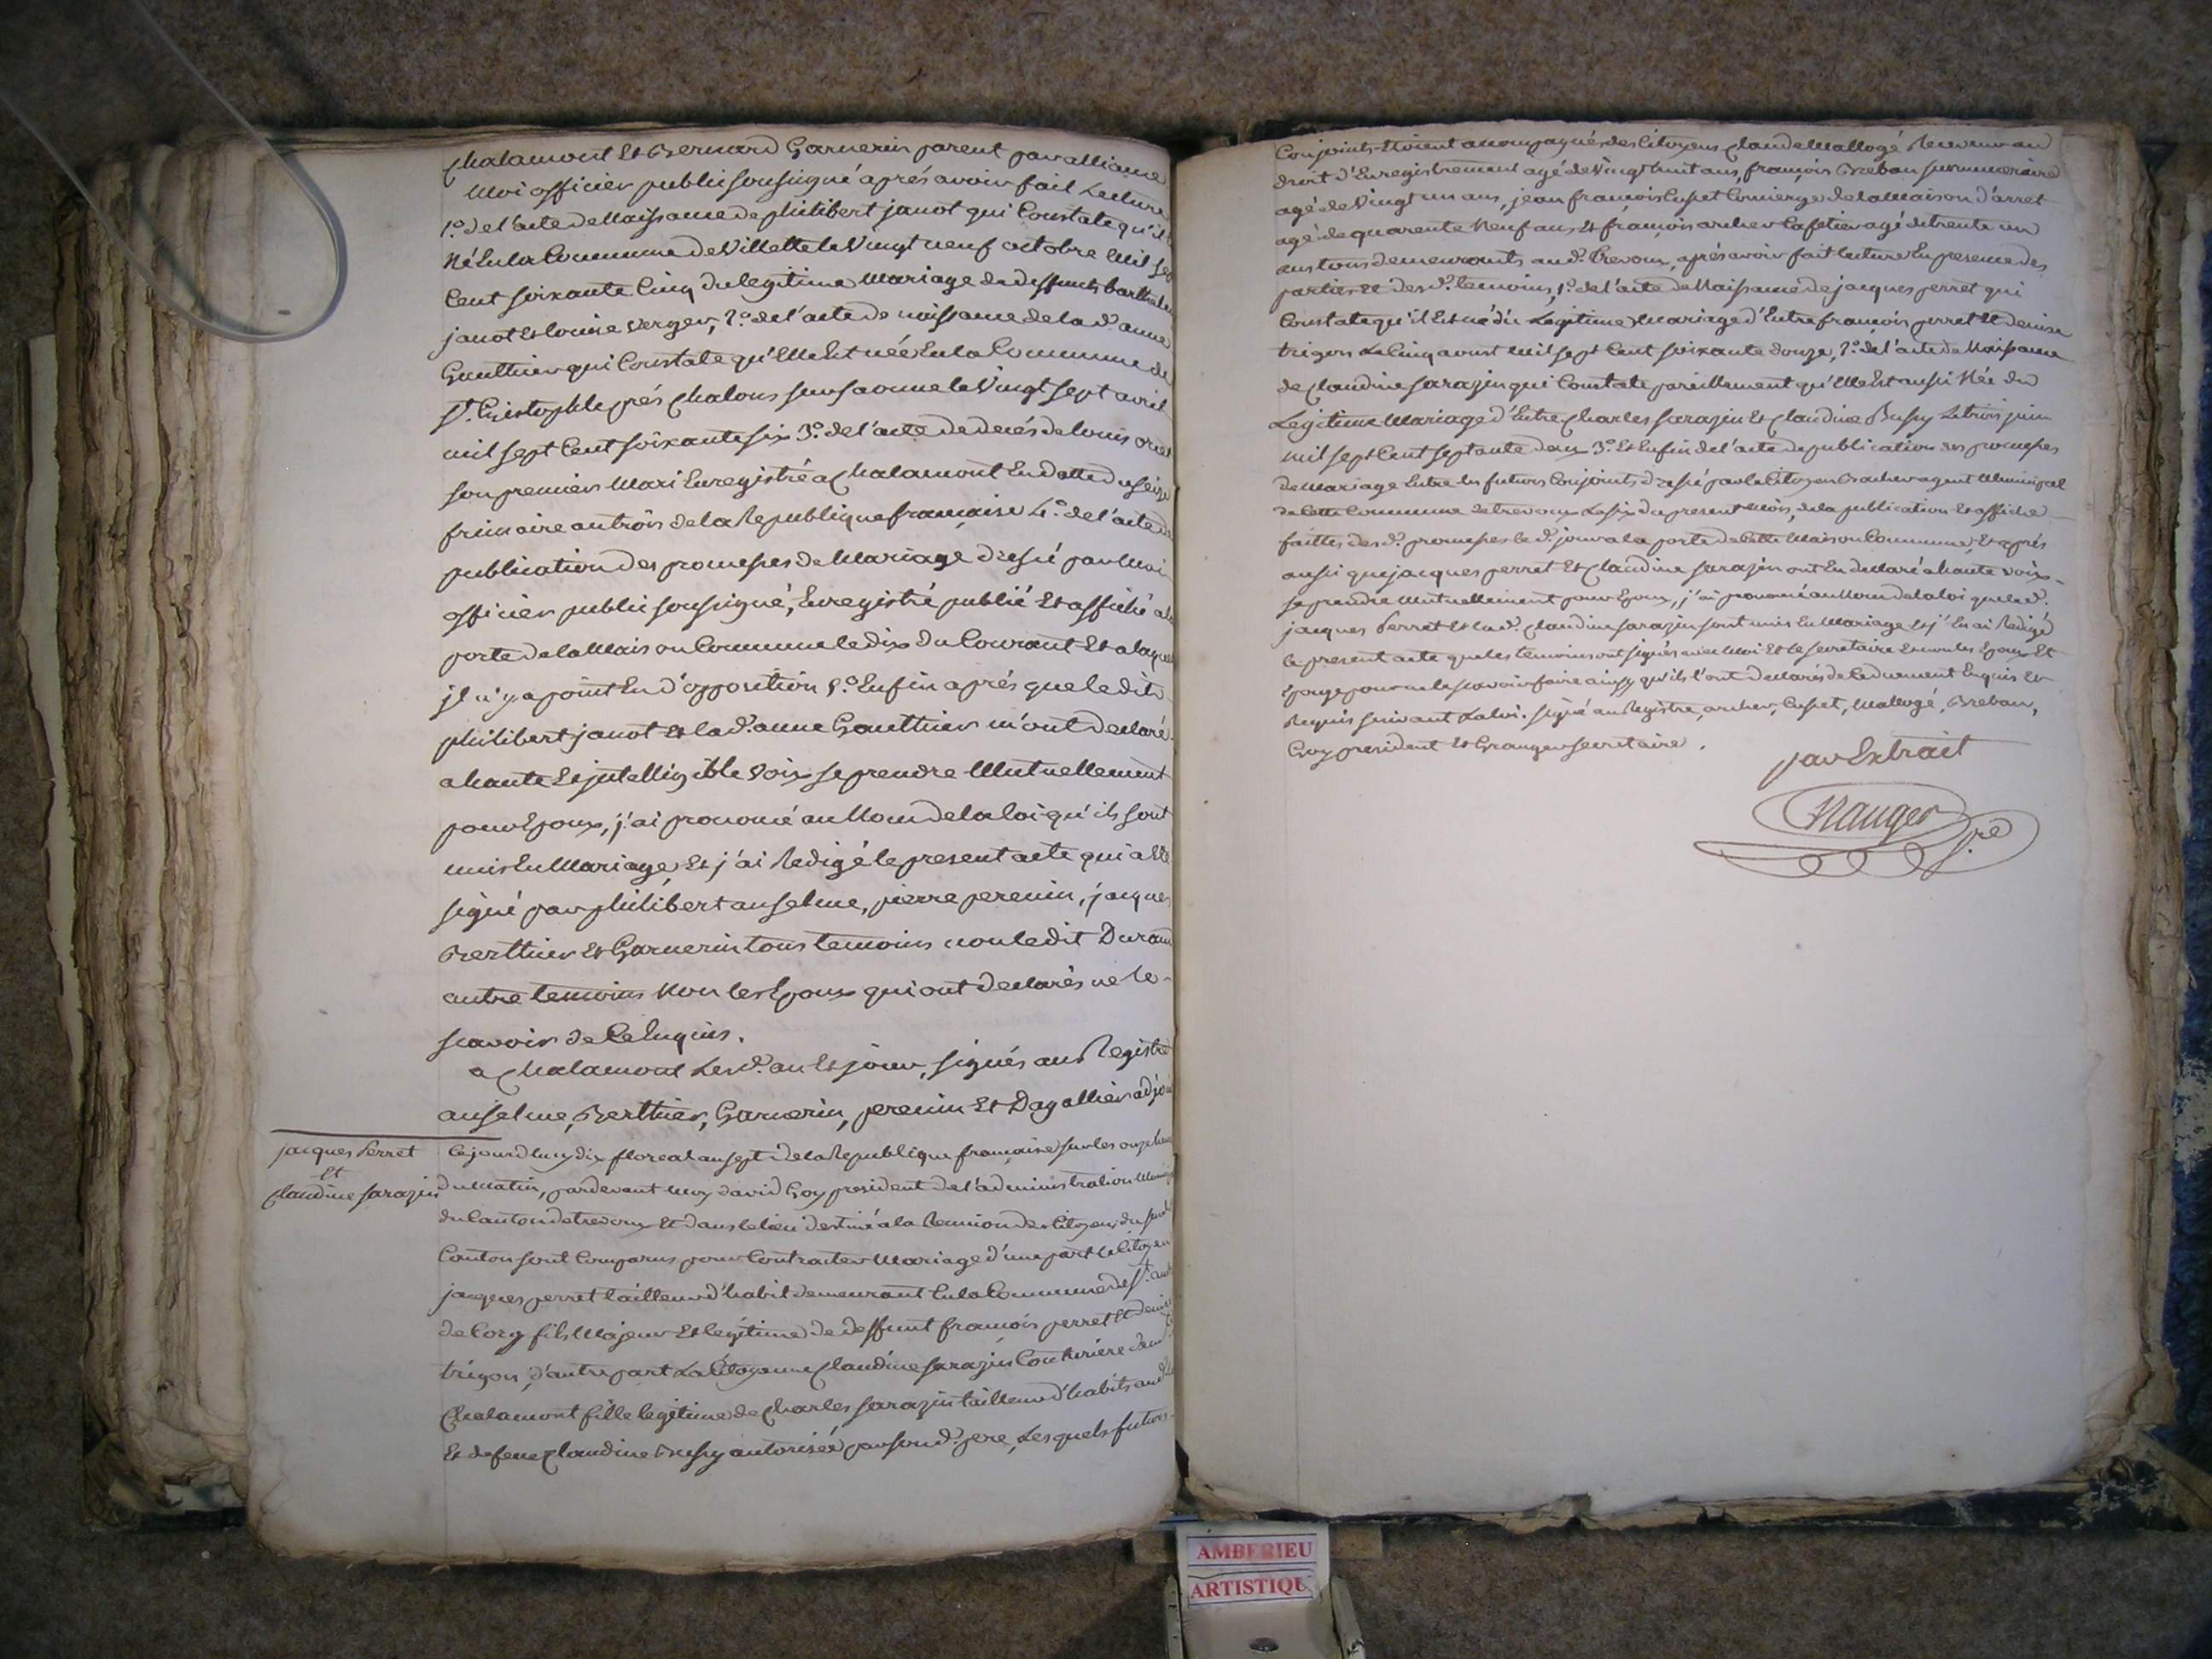 Chalamont Et Bernard Garnerin parent par alliance
Moi officier public soussigné aprés avoir fait Lecture
1º. de l'acte de Naissance de philibert janot qui Constate qu'il
Né En la Commune de Villette le Vingt neuf octobre Mil sep
Cent soixante Cinq du legitime Mariage de deffunts
janot Et louise verger, 2º. de l'acte de naissance de la d. anne
Gautthier qui Constate qu'Elle Est née En la Commune de
St. Cristophle prés Chalons sur saonne le Vingt sept avril
mil sept Cent soixante six 3º. de l'acte de decés de louis
son premier Mari Enregistré a Chalamont En datte du seize
frimaire an trois de la Republique francaise 4º. de l'acte de
publication des promesses de Mariage dressé par Moi
officier public soussigné, Enregistré publié Et affiché a la
porte de la Maison Commune le dix du Courant Et a laquel
jl n'y a point Eu d'opposition 5º. Enfin aprés que ledit
philibert janot Et la d. anne Gautthier m'ont declaré
a haute Et jntelligible voix se prendre Mutuellement
pour Epoux, j'ai prononcé au Nom de la loi qu'ils sont
unis En Mariage, Et j'ai Redigé le present acte qui a Eté
signé par philibert anselme, pierre perenin, jacques
Berthier Et Garnerin tous temoins non ledit Durand
autre temoins Non les Epoux qui ont declarés ne le
scavoir de Ce Enquis.
a Chalamont Les d. an Et jour, signés au Registre
anselme, Berthier, Garnerin, perenin Et Dagallier adjoi
jacques Perret
Et
Claudine sarazin
Cejourdhuy dix floreal an sept de la Republique francaise sur les onze heu
du Matin, pardevant Moy david Goy president de l'administration Munici
du Canton de trevoux Et dans le lieu destiné a la Reunion des Citoyens du
Conton sont Comparus pour Contracter Mariage d'une part le Citoyen
jacques perret tailleur d'habit demeurant En la Commune de St.
de Corcy fils Majeur Et legitime de deffunt francois perret Et denise
trigon, d'autre part La Citoyenne Claudine sarazin Couturiere
Chalamont fille legitime de Charles sarazin tailleur d'habits au d.
Et de feue Claudine Bussy autorisée par son d. pere, Les quels futurs
Conjoints Etoient accompagnés des Citoyens Claude Mallogé Receveur au
droit d'Enregistrement agé de Vingt huit ans, francois Breban surnumeraire
agé de Vingt un ans, jean francois Cuset Concierge de la Maison d'arret
agé de quarente Neuf ans Et francois archer Cafetier agé de trente un
ans tous demeurants au d. Trevoux, aprés avoir fait lecture En presence des
parties Et des d. temoins, 1º. de l'acte de Naissance de jacques perret qui
Constate qu'il Est né du Legitime Mariage d'Entre francois perret Et denise
trigon Le Cinq aoust Mil sept Cent soixante douze, 2º. de l'acte de Naissance
de Claudine sarazin qui Constate pareillement qu'Elle Est aussi Née du
Legitime Mariage d'Entre Charles sarazin Et Claudine Bussy Le trois juin
Mil sept Cent septante deux 3º. Et Enfin de l'acte de publication des promesses
de Mariage Entre les futurs Conjoints dressé par le Citoyen agent Municipal
de Cette Commune de trevoux Le six du present Mois, de la publication Et affiche
faittes des d. promesses le d. jour a la porte de Cette Maison Commune, Et aprés
aussi que jacques perret Et Claudine sarazin ont Eu declaré a haute voix
se prendre Mutuellement pour Epoux, j'ai prononcé au Nom de la loi que le d.
jacques Perret Et la d. Claudine sarazin sont unis En Mariage Et j'En ai Redigé
le present acte que les temoins ont signés avec Moi Et le secretaire Et non les Epoux Et
Epouse pour ne le scavoir faire ainsy qu'ils l'ont declarés de Ce duement Enquis Et
Requis suivant La loi. signé au Registre, archer, Cuset, Mallogé, Breban,
Goy president Et Granger secretaire.
par Extrait
Granger
AMBERIEU
ARTISTIQU